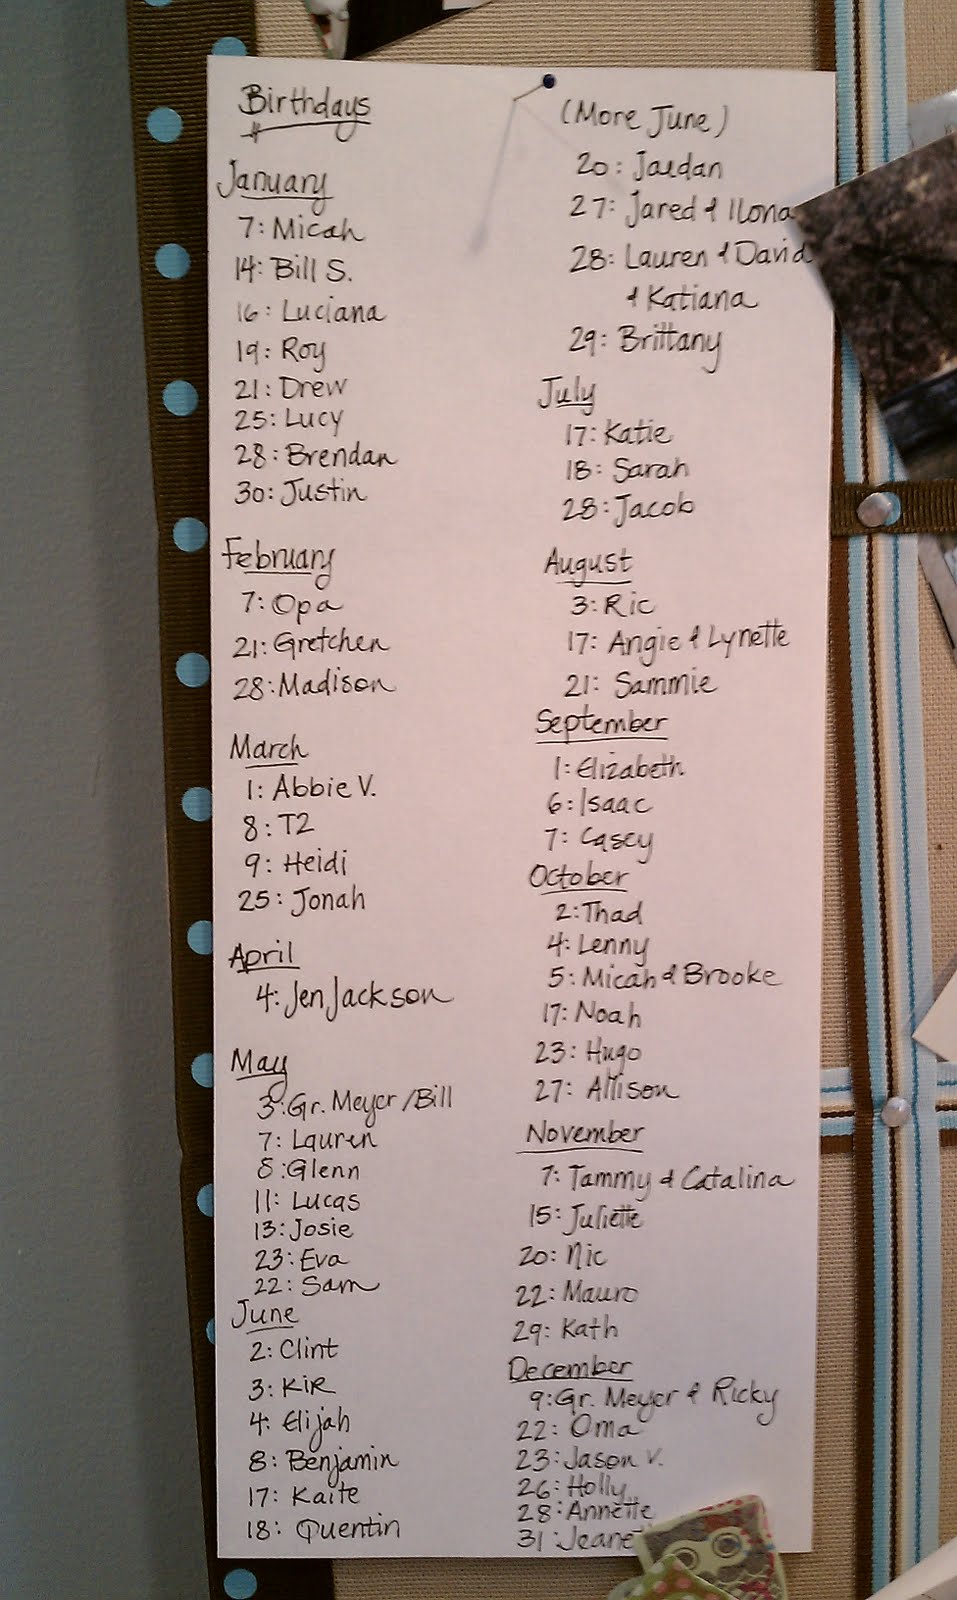 Birthdays
January
7: Micah
14: Bill S.
16: Luciana
19: Roy
21: Drew
25: Lucy
28: Brendan
30: Justin
February
7: Opa
21: Gretchen
28: Madison
March
1: Abbie V.
8: T2
9: Heidi
25: Jonah
April
4: Jen Jackson
May
3: Gr. Meyer / Bill
7: Lauren
8: Glenn
11: Lucas
13: Josie
23: Eva
22: Sam
June
2: Clint
3: KiR
4: Elijah
8: Benjamin
17: Kaite
18: Quentin
(More June)
20: Jaidan
27: Jared & Ilona
28: Lauren & David
& Katiana
29: Brittany
July
17: Katie
18: Sarah
28: Jacob
August
3: Ric
17: Angie & Lynette
21: Sammie
September
1: Elizabeth
6: Isaac
7: Casey
October
2: Thad
4: Lenny
5: Micah & Brooke
17: Noah
23: Hugo
27: Allison
November
7: Tammy & Catalina
15: Juliette
20: Nic
22: Mauro
29: Kath
December
9: Gr. Meyer & Ricky
22: Oma
23: Jason V.
26: Holly
28: Annette
31: